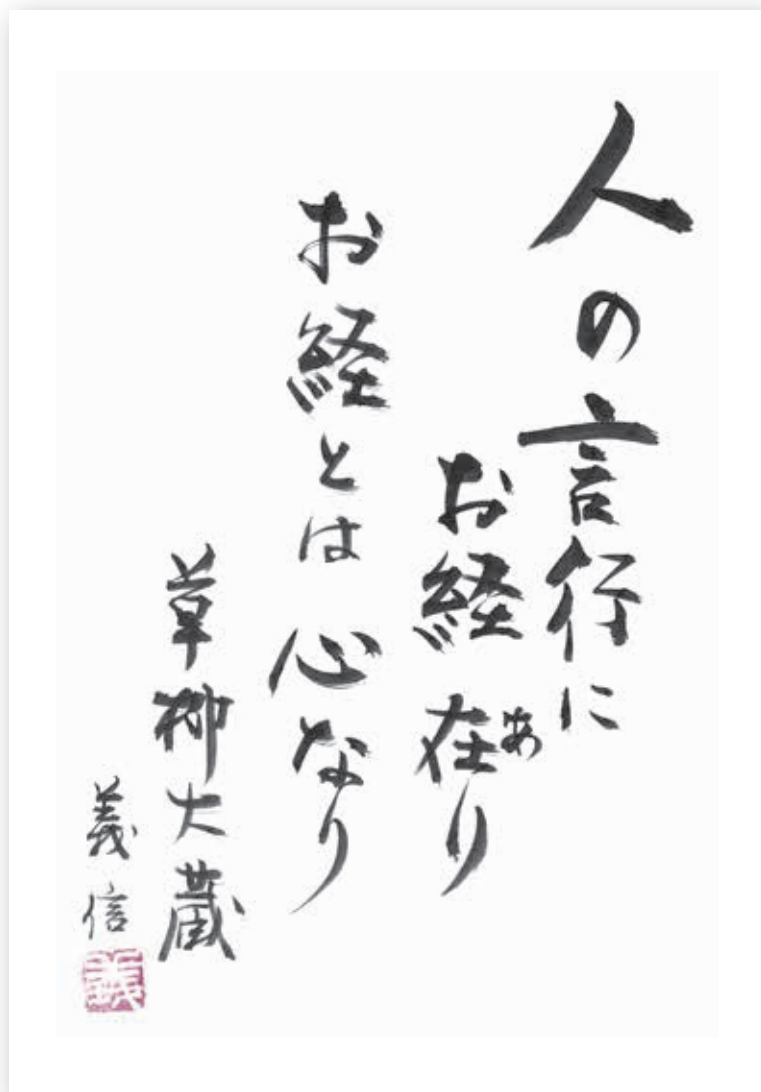 人の言行に
お経在り
あ
お経とは心なり
草柳大蔵
義信
義